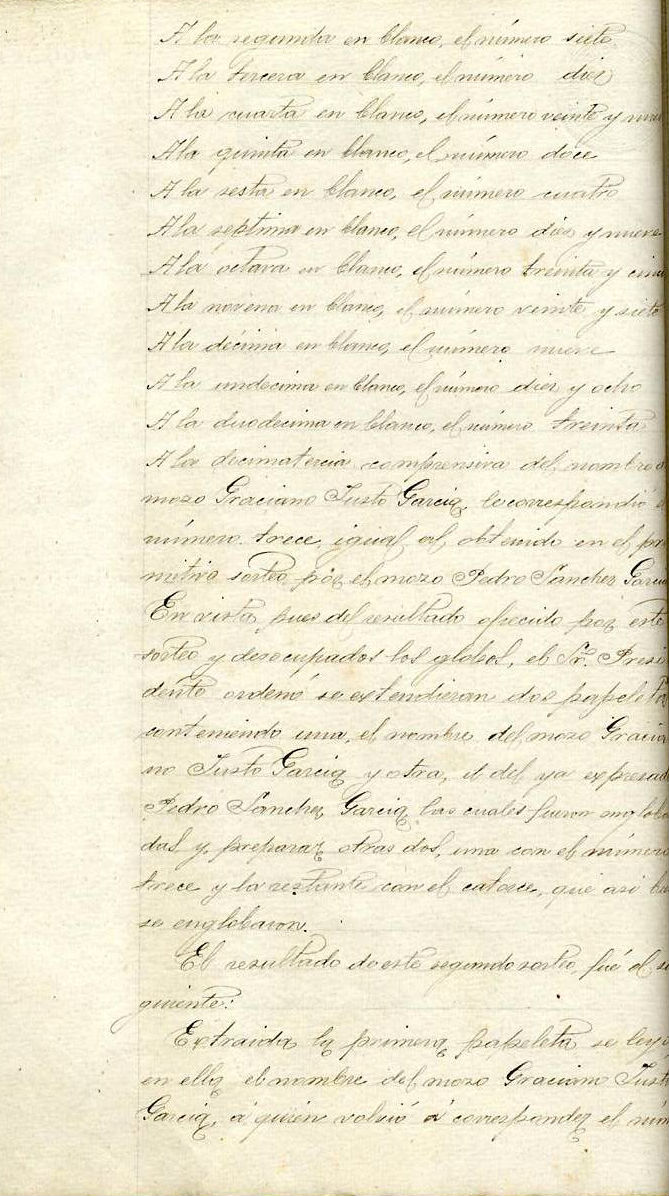 A la segunda en blanco, el número siete
A la tercera en blanco, el número diez
A la cuarta en blanco, el número veinte y uno
A la quinta en blanco, el número doce
A la sesta en blanco, el número cuatro
A la septima en blanco, el número diez y nueve
A la octava en blanco, el número treinta y cinc
A la novena en blanco, el número veinte y siete
A la décima en blanco, el número nueve
A la undecima en blanco, el número diez y ocho
A la duodecima en blanco, el número treinta
A la decimatercia comprensiva del nombre d
mozo Graciano Justo Garcia, le correspondió e
número trece, igual al obtenido en el pri
mitivo sorteo por el mozo Pedro Sanchez Garcia
En vista pues del resultado ofrecido por este
sorteo y desocupados los globos, el Sr. Presi
dente ordenó se extendieran dos papeletas
conteniendo una, el nombre del mozo Gracia
no Justo Garcia y otra, el del ya expresad
Pedro Sanchez Garcia, las cuales fueron engloba
das y preparar otras dos, una con el número
trece y la restante con el catorce, que asi
se englobaron.
El resultado de este segundo sorteo, fué el si
guiente:
Extraida la primera papeleta se leyó
en ella el nombre del mozo Graciano Just
Garcia, á quien volvió á corresponder el núm